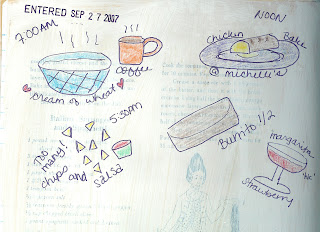 ENTERED SEP 27 2007
7:00AM
coffee
cream of wheat
NOON
Chicken Bake
@ Michelli's
5:30pm
Too
many!
chips and
salsa
Burrito 1/2
margarita
strawberry